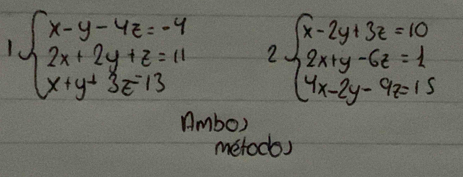 1. x-y-4z=-4
2x+2y+z=11
x+y+3z=13
2. x-2y+3z=10
2x+y-6z=1
4x-2y-9z=15
Ambos
métodos